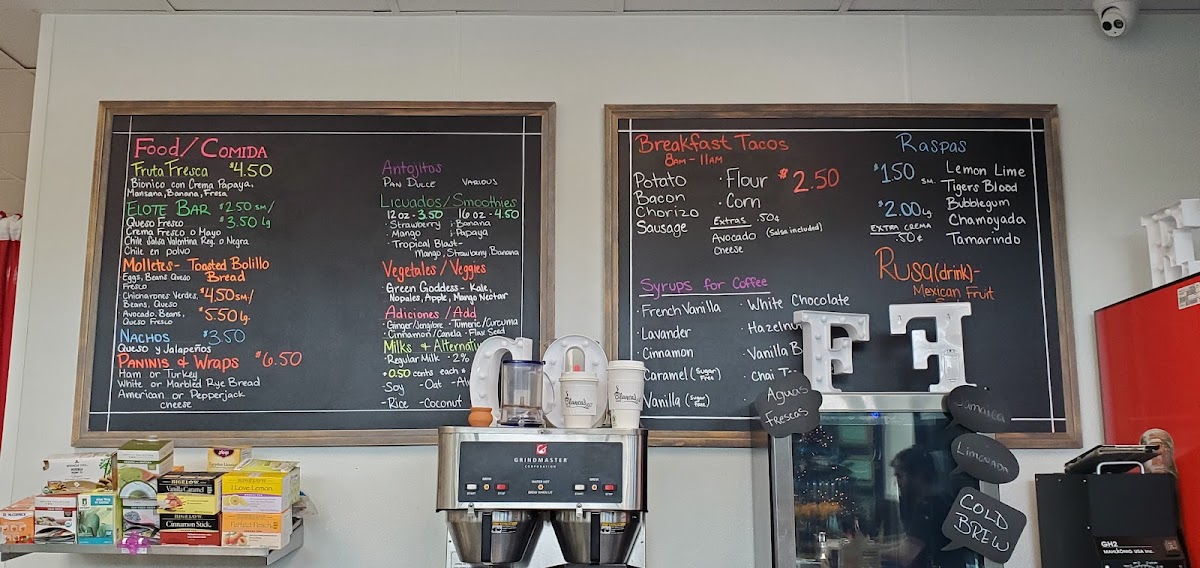 Food/Comida
Fruta Fresca $4.50
Bionico con Crema Papaya,
Mansana, Banana, Fresa
Elote Bar $2.50 sm/
Queso Fresco $3.50 Lg
Crema Fresco o Mayo
Chile Salsa Valentina Reg. o Negra
Chile en polvo
Molletes- Toasted Bolillo
Bread
Eggs, Beans Queso
Fresco
Chicharones Verdes, $4.50 sm/
Beans, Queso
Avocado, Beans, $5.50 Lg.
Queso Fresco
Nachos $3.50
Queso y Jalapeños
Paninis & Wraps $6.50
Ham or Turkey
White or Marbled Rye Bread
American or Pepperjack
cheese
Antojitos
Pan Dulce Various
Licuados/Smoothies
12 oz - 3.50 16 oz - 4.50
· Strawberry · Banana
· Mango · Papaya
· Tropical Blast-
Mango, Strawburry, Banana
Vegetales/Veggies
· Green Goddess- Kale,
Nopales, Apple, Mango Nectar
Adiciones/Add
· Ginger/Jengibre · Tumeric/Curcuma
· Cinnamon/Canela · Flax Seed
Milks & Alternati
· Regular Milk · 2%
+0.50 cents each
-Soy -Oat
-Rice -Coconut
Breakfast Tacos
8am - 11am
Potato · Flour $2.50
Bacon · Corn
Chorizo Extras .50¢
Sausage Avocado (Salsa included)
cheese
Syrups for Coffee
· French Vanilla · White Chocolate
· Lavander · Hazeln
· Cinnamon · Vanilla B
· Caramel (Sugar Free) · Chai
· Vanilla (Sugar Free)
Raspas
$1.50 sm. Lemon Lime
Tigers Blood
$2.00 Lg Bubblegum
Extra Crema Chamoyada
.50¢ Tamarindo
Rusa (drink)-
Mexican Fruit
F F
Aguas
Frescas
Jamaica
Limonada
Cold
Brew
GRINDMASTER
CORPORATION
BIGELOW
Vanilla Caramel
BIGELOW
Cinnamon Stick
I Love Lemon
Perfect Peach
GH2
MAHLKÖNIG USA Inc.